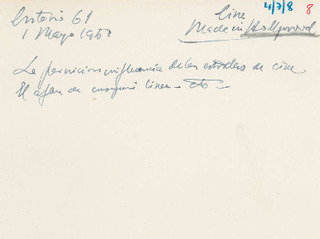 Criterio 61
1 Mayo 1950
4/7/8 8
Cine
Made in Hollywood
La perniciosa influencia de las estrellas de cine.
El afan de conseguir linea. etc